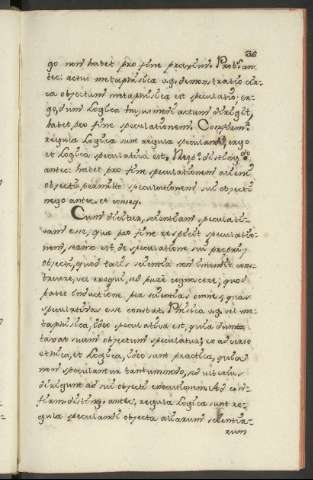 go non habet pro fine proximo. Prob. an-
tec. actus metaphisica v.g. demonstratio cir-
ca objectum metaphisica est speculatio; er-
go, dum Logica hujusmodi actum dirigit,
habet pro fine speculationem. Confirm.
regula Logica sunt regula speculandi; ergo
et Logica speculativa est. Resp. disting.
antec. habet pro fine speculationem alieni
objecti, permitto; speculationem sui objecti
nego antec. et conseq.
Cum dicitur, scientiam speculati-
vam esse, qua pro fine respicit speculatio-
nem, sermo est de speculatione sui proprii
objecti, quod talis scientia non intendit cons-
truere, vel erigere, sed pure cognoscere; quod
patet inductione per scientias omnes, quas
speculativas esse constat. Phisica v.g. vel me-
taphisica, ideo speculativa est, quia dum-
taxat suum objectum speculatur; e adverso
ethica, et Logica, ideo sunt practica, quia
non speculantur tantummodo, sed ulterius
dirigunt ad sui objecti executionem. Ad con-
firm. disting. antec. regula Logica sunt re-
gula speculandi objecta aliarum scientia-
rum